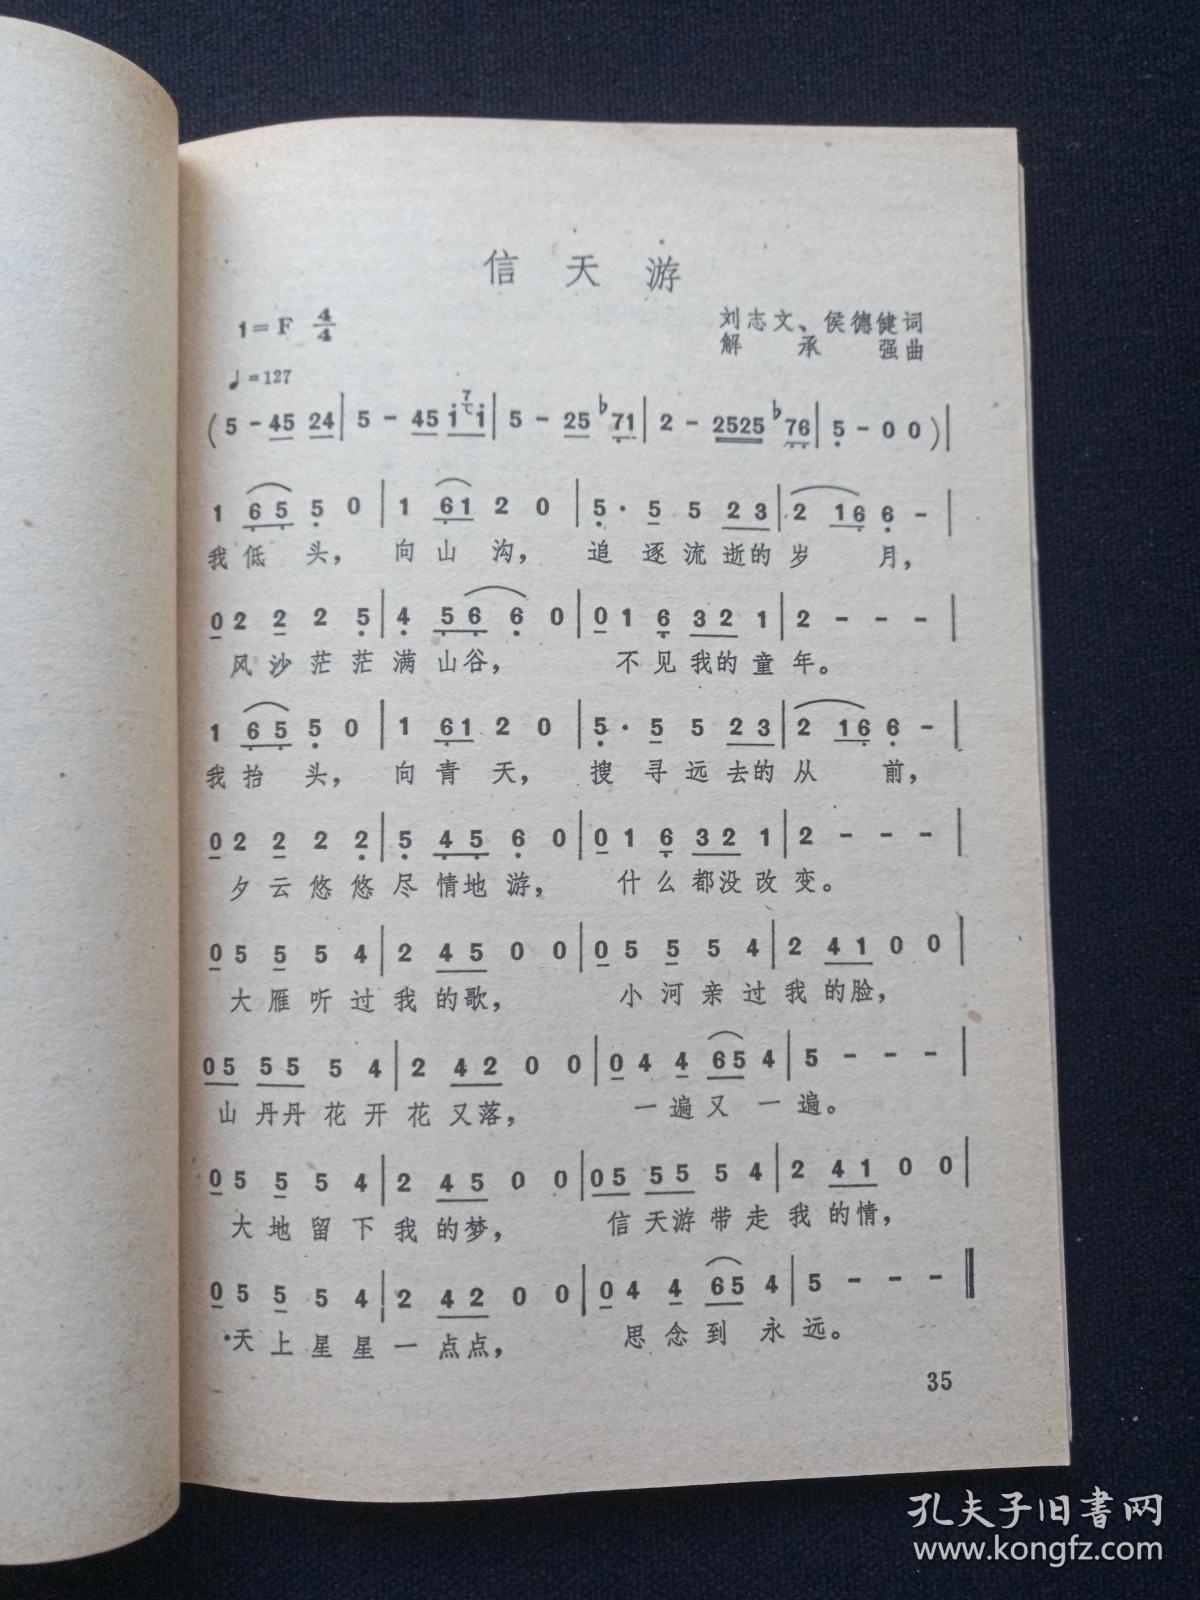 信天游
1=F 4/4
刘志文、侯德健词
解承强曲
♩=127
(5 - 45 24 | 5 - 45 i 7 i | 5 - 25 ♭71 | 2 - 2525 ♭76 | 5 - 0 0) |
1 65 5 0 | 1 61 2 0 | 5· 5 5 23 | 2 16 6 - |
我低头，向山沟，追逐流逝的岁月，
0 2 2 2 5 | 4 56 6 0 | 0 1 6 32 1 | 2 - - - |
风沙茫茫满山谷，不见我的童年。
1 65 5 0 | 1 61 2 0 | 5· 5 5 23 | 2 16 6 - |
我抬头，向青天，搜寻远去的从前，
0 2 2 2 2 | 5 45 6 0 | 0 1 6 32 1 | 2 - - - |
夕云悠悠尽情地游，什么都没改变。
0 5 5 5 4 | 2 45 0 0 | 0 5 5 5 4 | 2 41 0 0 |
大雁听过我的歌，小河亲过我的脸，
05 55 5 4 | 2 42 0 0 | 0 4 4 65 4 | 5 - - - |
山丹丹花开花又落，一遍又一遍。
0 5 5 5 4 | 2 45 0 0 | 05 55 5 4 | 2 41 0 0 |
大地留下我的梦，信天游带走我的情，
0 5 5 5 4 | 2 42 0 0 | 0 4 4 65 4 | 5 - - - ‖
天上星星一点点，思念到永远。
35
孔夫子旧书网
www.kongfz.com